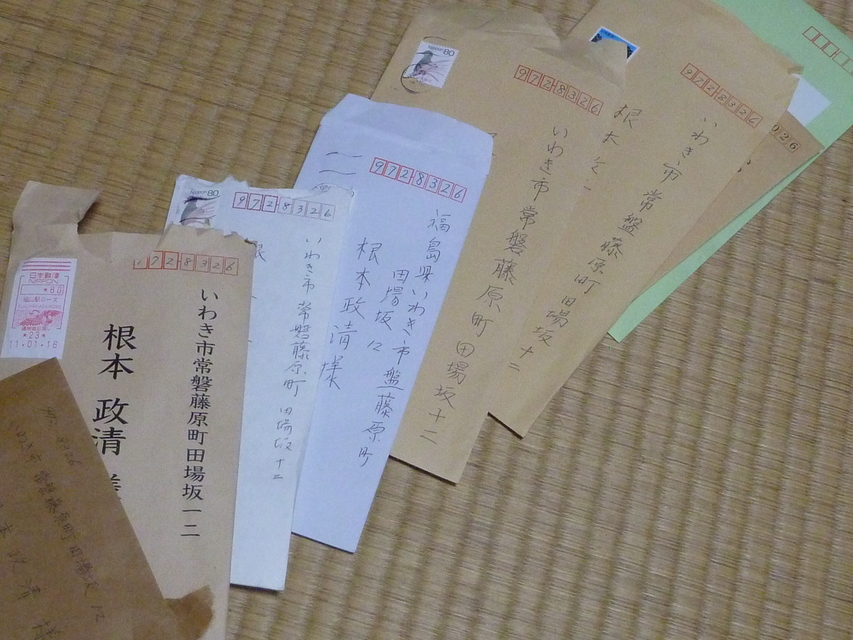 日本郵便
NIPPON
*80
11.01.16
9728326
いわき市常磐藤原町田場坂一二
根本 政清
NIPPON 80
9728326
いわき市 常磐藤原町 田場坂十二
9728326
福島県いわき市盤藤原町
田場坂12
根本政清様
80
9728326
いわき市常磐藤原町田場坂十二
根本
9728326
いわき市常磐藤原町田場坂十二
026